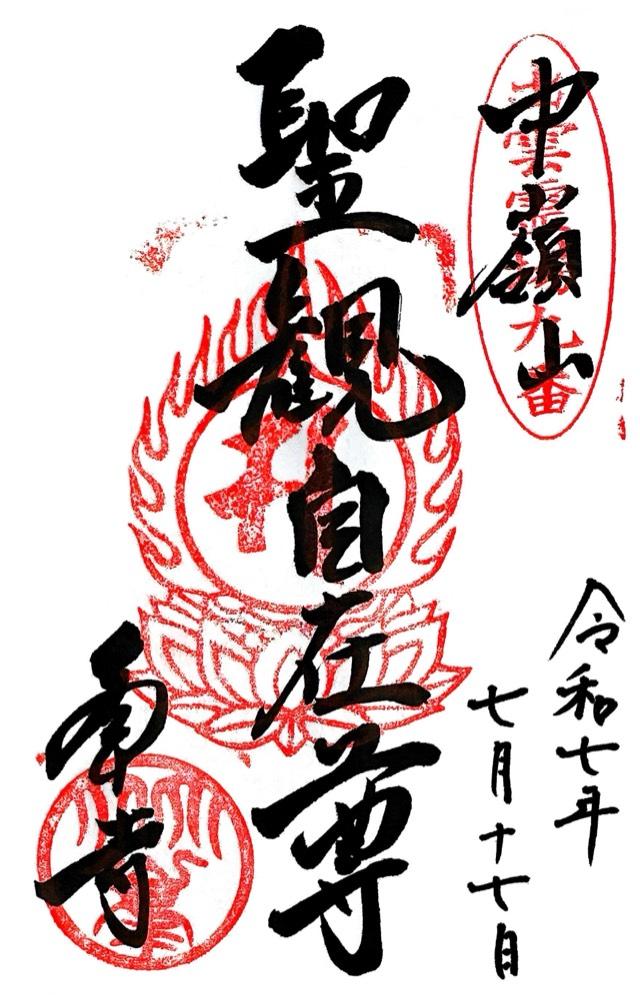 中嶺山
雲霊九番
聖観自在尊
令和七年
七月十七日
峯寺